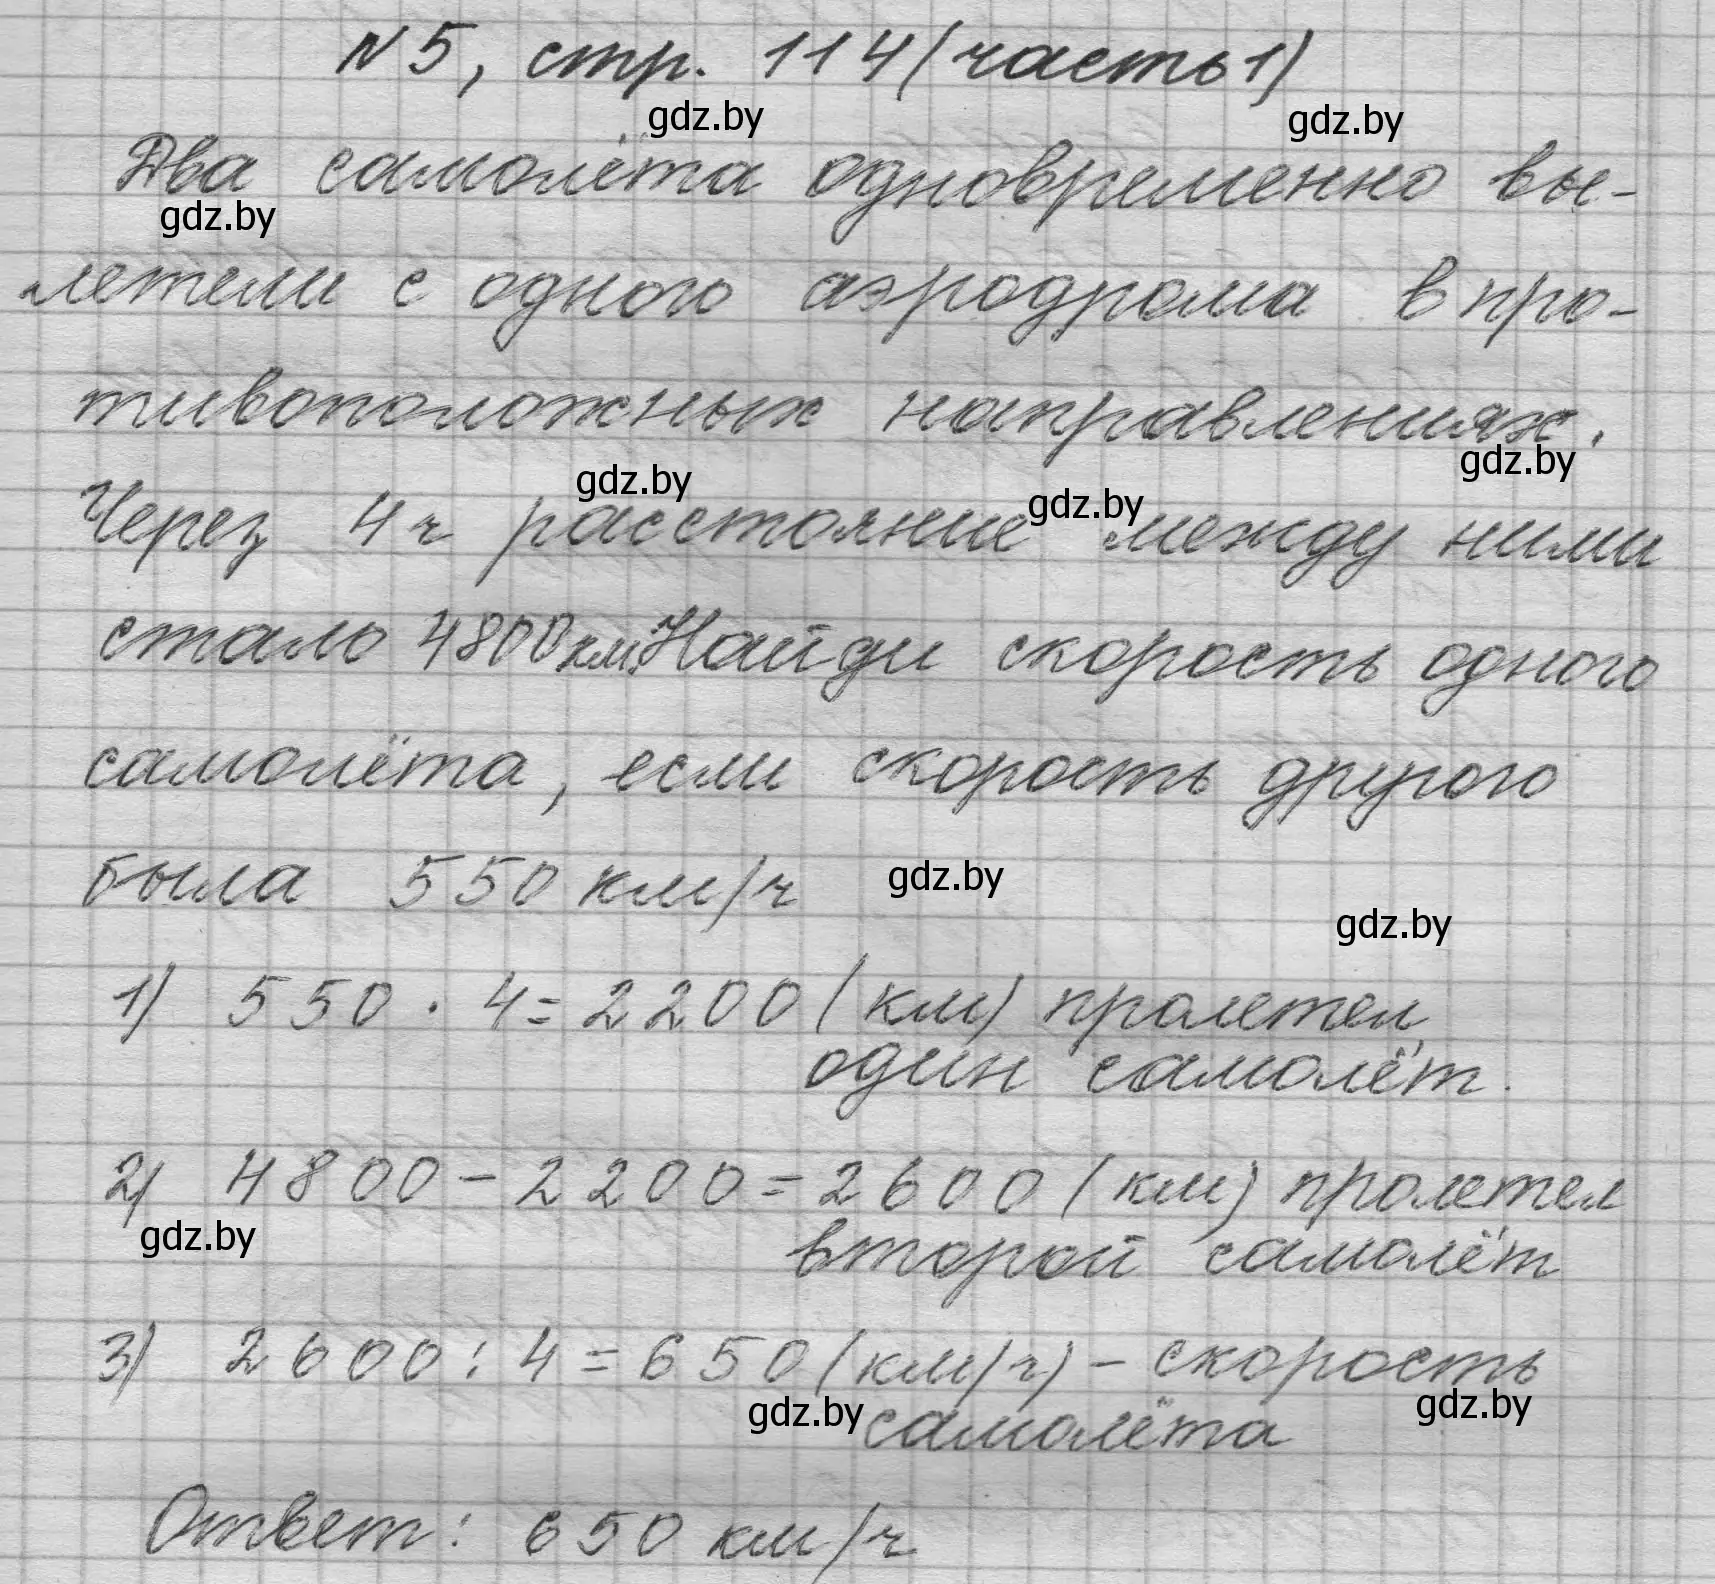 N 5, стр. 114 (часть 1)
gdz.by gdz.by
Два самолёта одновременно вы-
gdz.by
летели с одного аэродрома в про-
тивоположных направлениях.
gdz.by
gdz.by gdz.by
Через 4 ч расстояние между ними
стало 4800 км. Найди скорость одного
самолёта, если скорость другого
была 550 км/ч
gdz.by
gdz.by
1) 550 · 4 = 2200 (км) пролетел
один самолёт.
2) 4800 - 2200 = 2600 (км) пролетел
gdz.by
второй самолёт
3) 2600 : 4 = 650 (км/ч) - скорость
gdz.by gdz.by
самолёта
Ответ: 650 км/ч